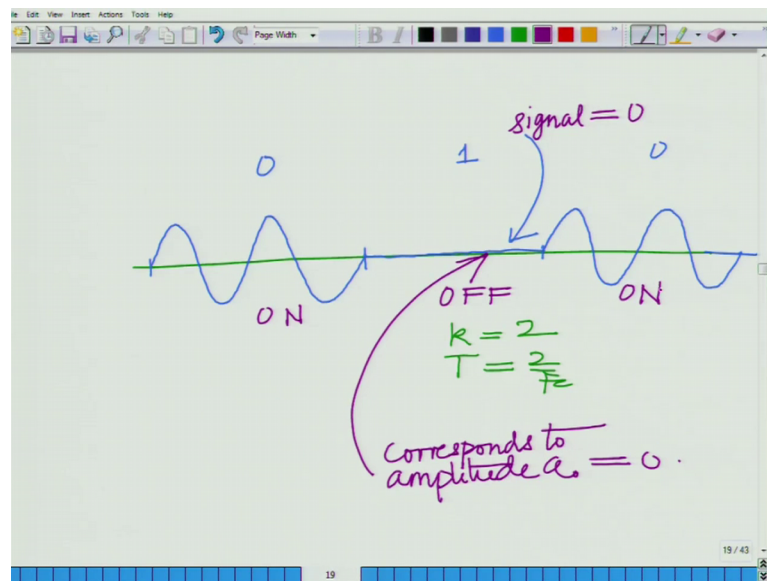 Edit View Insert Actions Tools Help
Page Width
B I
signal = 0
0 1 0
ON OFF ON
k = 2
T = 2/Fc
corresponds to
amplitude a₀ = 0.
19 / 43
19